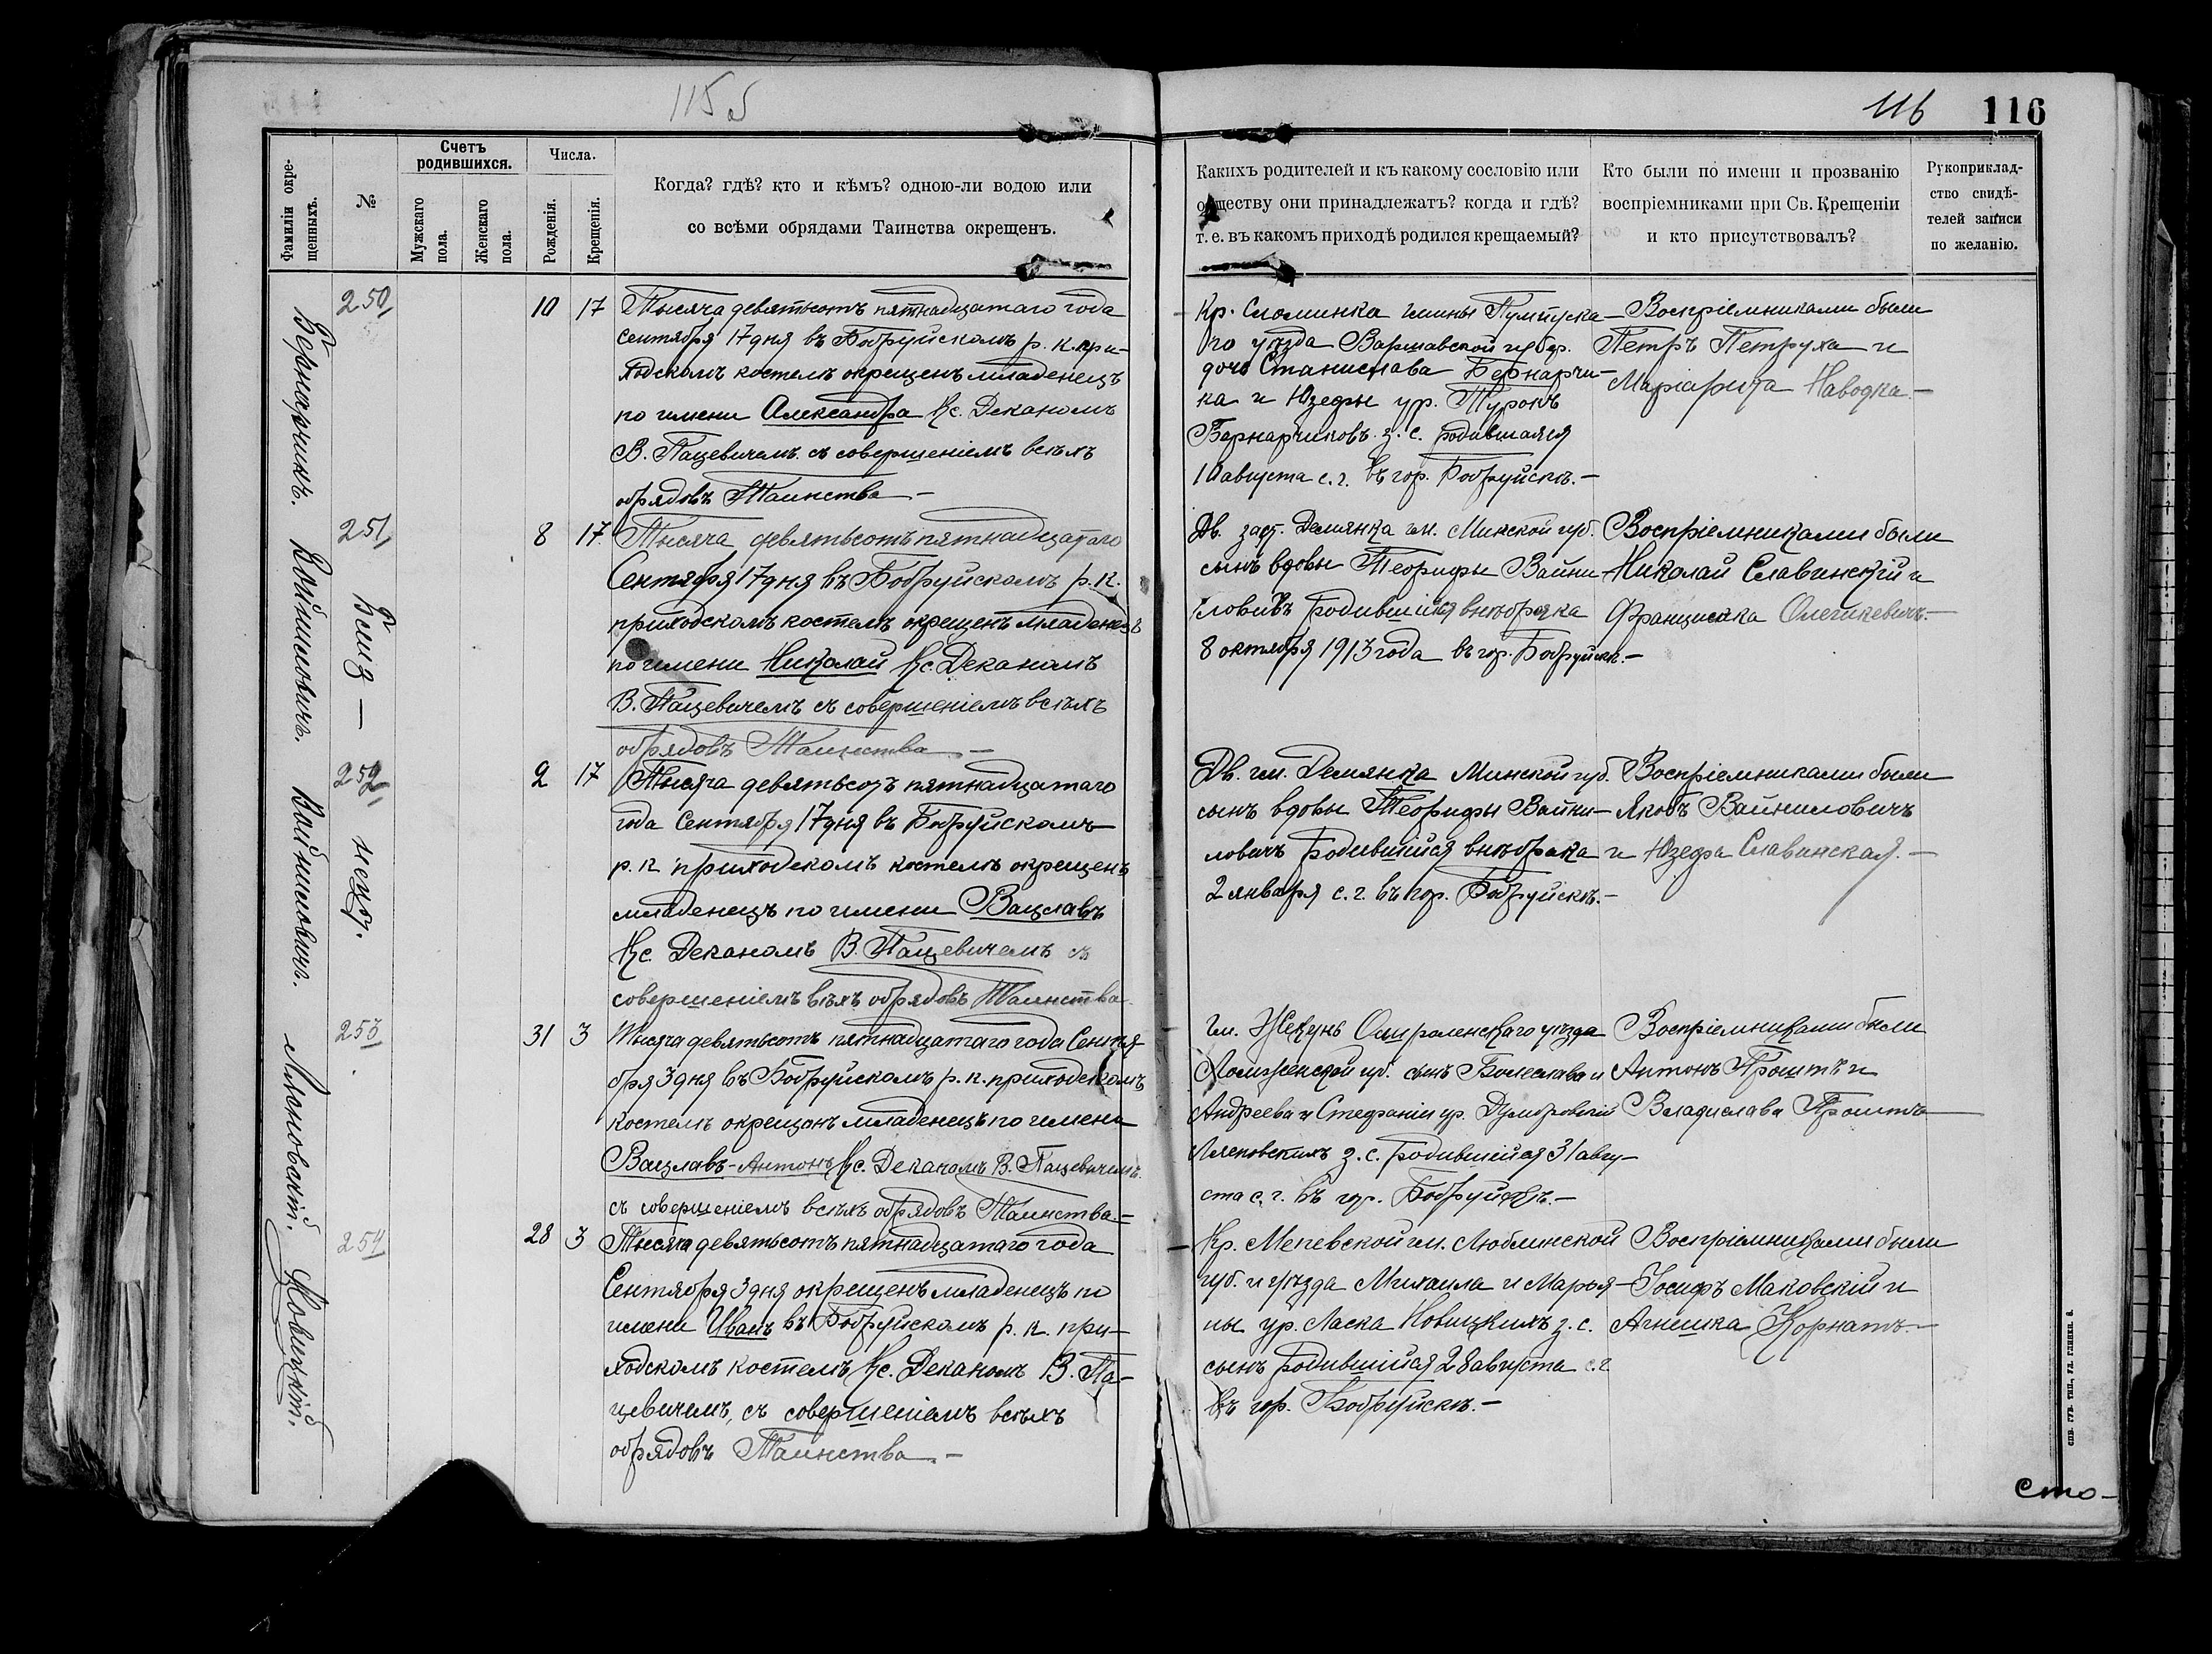 115 б
116
116
Фамиліи окре-
щенныхъ.
№
Счетъ
родившихся.
Мужскаго
пола.
Женскаго
пола.
Числа.
Рожденія.
Крещенія.
Когда? гдѣ? кто и кѣмъ? одною-ли водою или
со всѣми обрядами Таинства окрещенъ.
Какихъ родителей и къ какому сословію или
обществу они принадлежатъ? когда и гдѣ?
т. е. въ какомъ приходѣ родился крещаемый?
Кто были по имени и прозванію
воспріемниками при Св. Крещеніи
и кто присутствовалъ?
Рукоприклад-
ство свидѣ-
телей записи
по желанію.
Бернарчикъ.
250
10
17
Тысяча девятьсотъ пятнадцатаго года
Сентября 17 дня въ Бобруйскомъ р. к. при-
ходскомъ костелѣ окрещенъ младенецъ
по имени Александра Кс. Деканомъ
В. Пацевичемъ съ совершеніемъ всѣхъ
обрядовъ Таинства —
Кр. гмины Пултуска-
го уѣзда Варшавской губер.
дочь Станислава Бернарчи-
ка и Юзефы ур. Турокъ
Бернарчиковъ з. с. родившаяся
10 августа с. г. въ гор. Бобруйскѣ. —
Воспріемниками были
Петръ Петруха и
Маріанна Наводка. —
Войниловичъ.
251
Близ — нецы.
8
17
Тысяча девятьсотъ пятнадцатаго
Сентября 17 дня въ Бобруйскомъ р. к.
приходскомъ костелѣ окрещенъ младенецъ
по имени Николай Кс. Деканомъ
В. Пацевичемъ съ совершеніемъ всѣхъ
обрядовъ Таинства —
Дв. заст. Демянка им. Минской губ.
сынъ вдовы Теофифы Войни-
ловичъ родившійся внѣ брака
8 октября 1913 года въ гор. Бобруйскѣ. —
Воспріемниками были
Николай Славинскій и
Франциска Олешкевичъ. —
Войниловичъ.
252
2
17
Тысяча девятьсотъ пятнадцатаго
года Сентября 17 дня въ Бобруйскомъ
р. к приходскомъ костелѣ окрещенъ
младенецъ по имени Вацлавъ
Кс. Деканомъ В. Пацевичемъ съ
совершеніемъ всѣхъ обрядовъ Таинства
Дв. им. Демянка Минской губ.
сынъ вдовы Теофифы Войни-
ловичъ родившійся внѣ брака
2 января с. г. въ гор. Бобруйскѣ. —
Воспріемниками были
Якобъ Войниловичъ
и Юзефа Славинская. —
Лясковскій.
253
31
3
Тысяча девятьсотъ пятнадцатаго года Сентя-
бря 3 дня въ Бобруйскомъ р. к. приходскомъ
костелѣ окрещенъ младенецъ по имени
Вацлавъ-Антонъ Кс. Деканомъ В. Пацевичемъ
съ совершеніемъ всѣхъ обрядовъ Таинства. —
Гм. Жекунь Остроленскаго уѣзда
Ломженской губ. сынъ Болеслава и
Андреева и Стефаніи ур. Домбровской
Лясковскихъ з. с. родившійся 31 авгу-
ста с. г. въ гор. Бобруйскѣ. —
Воспріемниками были
Антонъ Проштъ и
Владислава Проштъ
Новицкій.
254
28
3
Тысяча девятьсотъ пятнадцатаго года
Сентября 3 дня окрещенъ младенецъ по
имени Иванъ въ Бобруйскомъ р. к. при-
ходскомъ костелѣ Кс. Деканомъ В. Па-
цевичемъ, съ совершеніемъ всѣхъ
обрядовъ Таинства. —
Кр. Мелевской гм. Люблинской
губ. и уѣзда Михаила и Марья-
ны ур. Ласка Новицкихъ з. с.
сынъ родившійся 28 августа с. г
въ гор. Бобруйскѣ. —
Воспріемниками были
Іосифъ Маковскій и
Агнешка Корнатъ. —
СПБ. ГУБ. ТИП., УЛ. ГЛИНКИ. 8.
Сто-